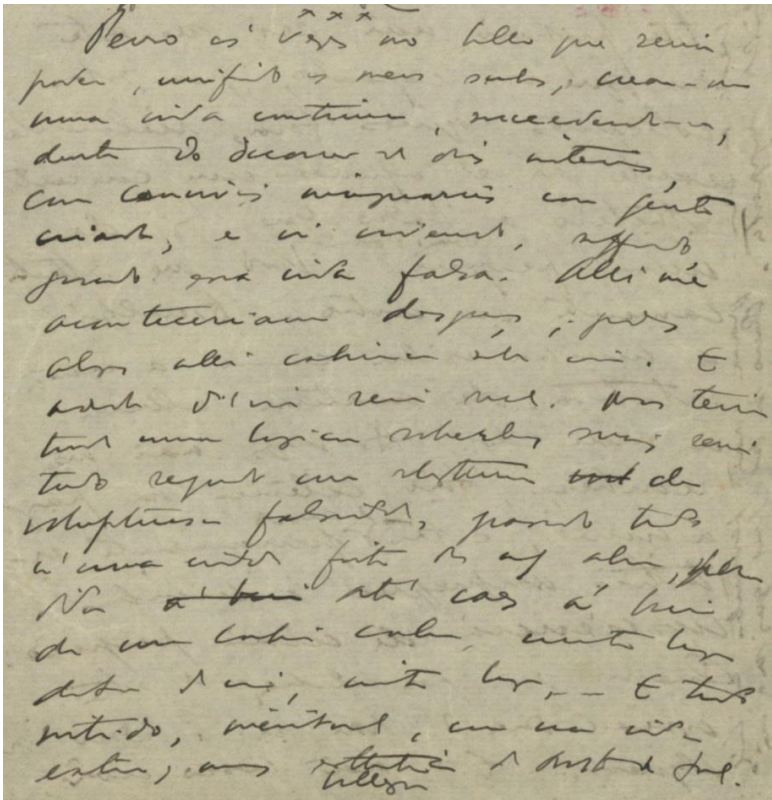 x x x
Penso ás vezes no bello que seria
poder, unificando os meus sonhos, crear-me
uma vida continua, succedendo-se,
dentro do decorrer de dias inteiros,
com convivas imaginarios com gente
creada, e ir vivendo, soffrendo,
gosando essa vida falsa. Alli me
aconteceriam desgraças; grandes
alli cahiriam sobre mim. E
nada d'mim seria real. Mas teria
tudo uma logica soberba, seria
tudo segundo um rhythmo de
voluptuosa falsidade, passando tudo
n'uma cidade feita de alma, perdida
até caes á beira
de um comboio calmo, muito longe
dentro de mim, muito longe... E tudo
nitido, inevitavel, como na vida
exterior, mas esthetica do Sol.
longe